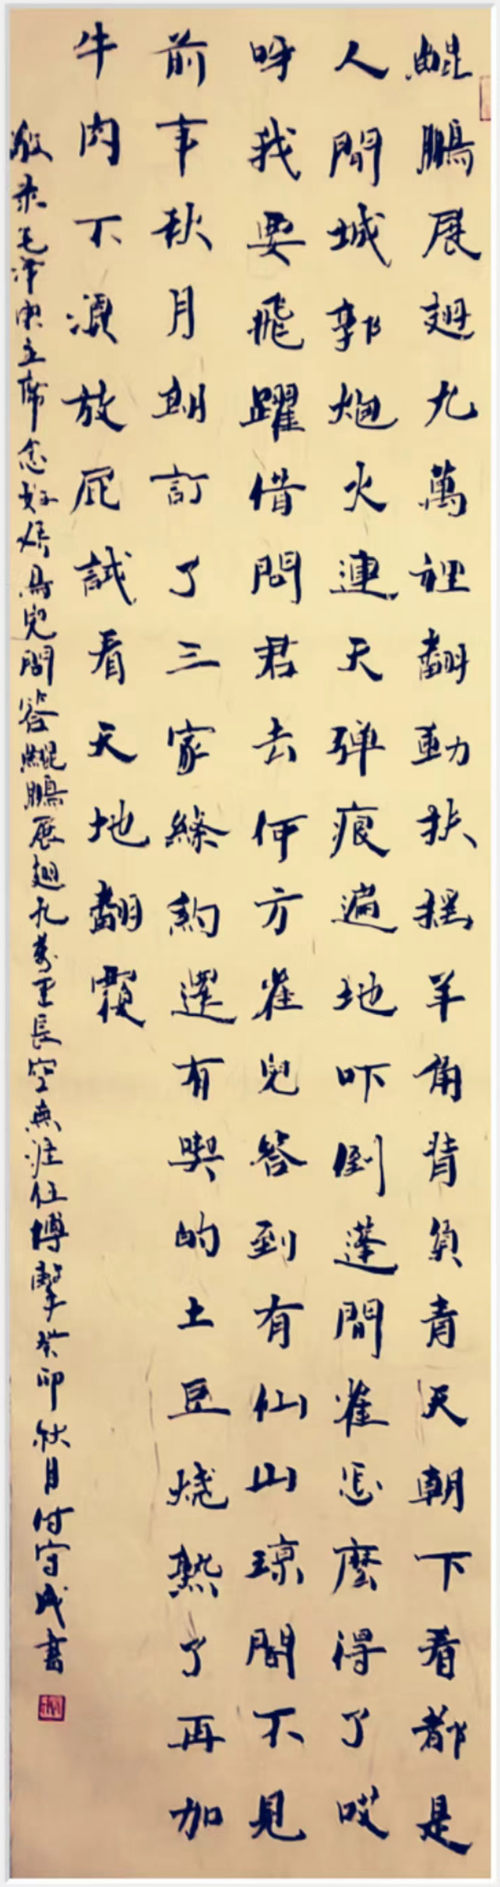 鯤鵬展翅九萬裡翻動扶搖羊角背負青天朝下看都是
人間城郭炮火連天弹痕遍地吓倒蓬間雀怎麼得了哎
呀我要飛躍借問君去何方雀兒答到有仙山瓊閣不見
前年秋月朝訂了三家條約還有喫的土豆烧熟了再加
牛肉不須放屁試看天地翻覆
敬录毛泽東主席念奴娇鳥兒問答鯤鵬展翅九萬里長空無涯任搏擊癸卯秋月付守成書